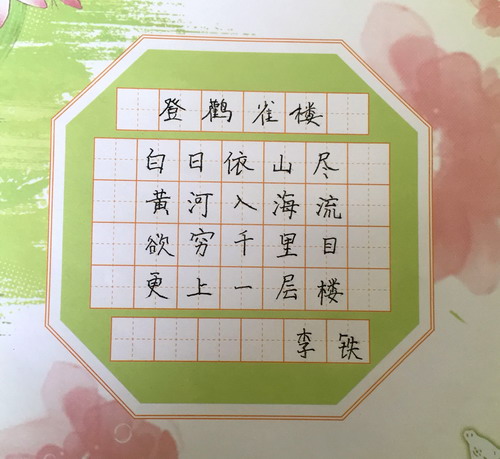 登鹳雀楼
白日依山尽
黄河入海流
欲穷千里目
更上一层楼
李铁